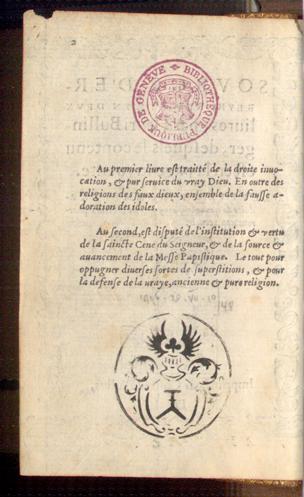 BIBLIOTHEQUE PUBLIQUE DE GENÈVE
Au premier liure est traitté de la droite inuo-
cation, & pur seruice du vray Dieu. En outre des
religions des faux dieux, ensemble de la fausse a-
doration des idoles.
Au second, est disputé de l'institution & vertu
de la saincte Cene du Seigneur, & de la source &
auancement de la Messe Papistique. Le tout pour
oppugner diuerses sortes de superstitions, & pour
la defense de la uraye, ancienne & pure religion.